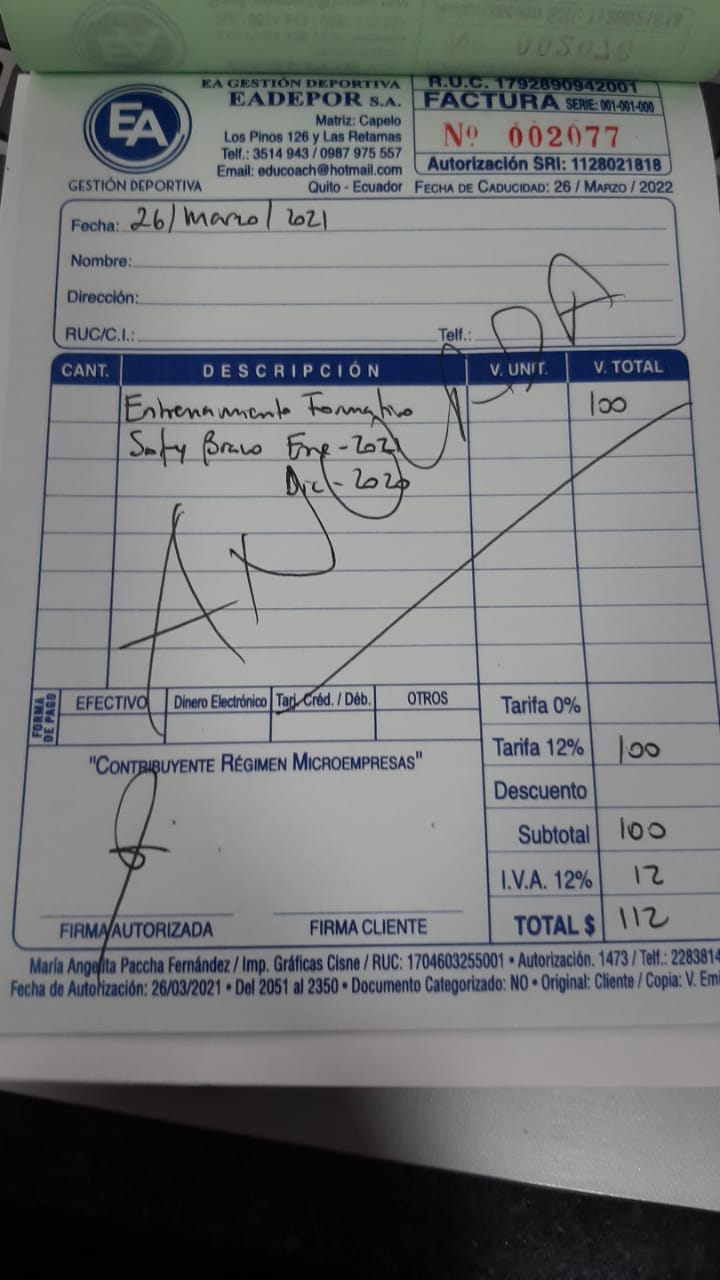 EA
GESTIÓN DEPORTIVA
EA GESTIÓN DEPORTIVA
EADEPOR S.A.
Matriz: Capelo
Los Pinos 126 y Las Retamas
Telf.: 3514 943 / 0987 975 557
Email: educoach@hotmail.com
Quito - Ecuador
R.U.C. 1792890942001
FACTURA SERIE: 001-001-000
Nº 002077
Autorización SRI: 1128021818
FECHA DE CADUCIDAD: 26 / MARZO / 2022
Fecha: 26/marzo/2021
Nombre:
Dirección:
RUC/C.I.: Telf.:
CANT. DESCRIPCIÓN V. UNIT. V. TOTAL
Entrenamiento Formativo 100
Bravo Ene-2021
Dic-2020
ANULADA
FORMA DE PAGO
EFECTIVO Dinero Electrónico Tarj. Créd. / Déb. OTROS
"CONTRIBUYENTE RÉGIMEN MICROEMPRESAS"
Tarifa 0%
Tarifa 12% 100
Descuento
Subtotal 100
I.V.A. 12% 12
TOTAL $ 112
FIRMA AUTORIZADA FIRMA CLIENTE
María Angelita Paccha Fernández / Imp. Gráficas Cisne / RUC: 1704603255001 • Autorización. 1473 / Telf.: 2283814
Fecha de Autorización: 26/03/2021 • Del 2051 al 2350 • Documento Categorizado: NO • Original: Cliente / Copia: V. Emi